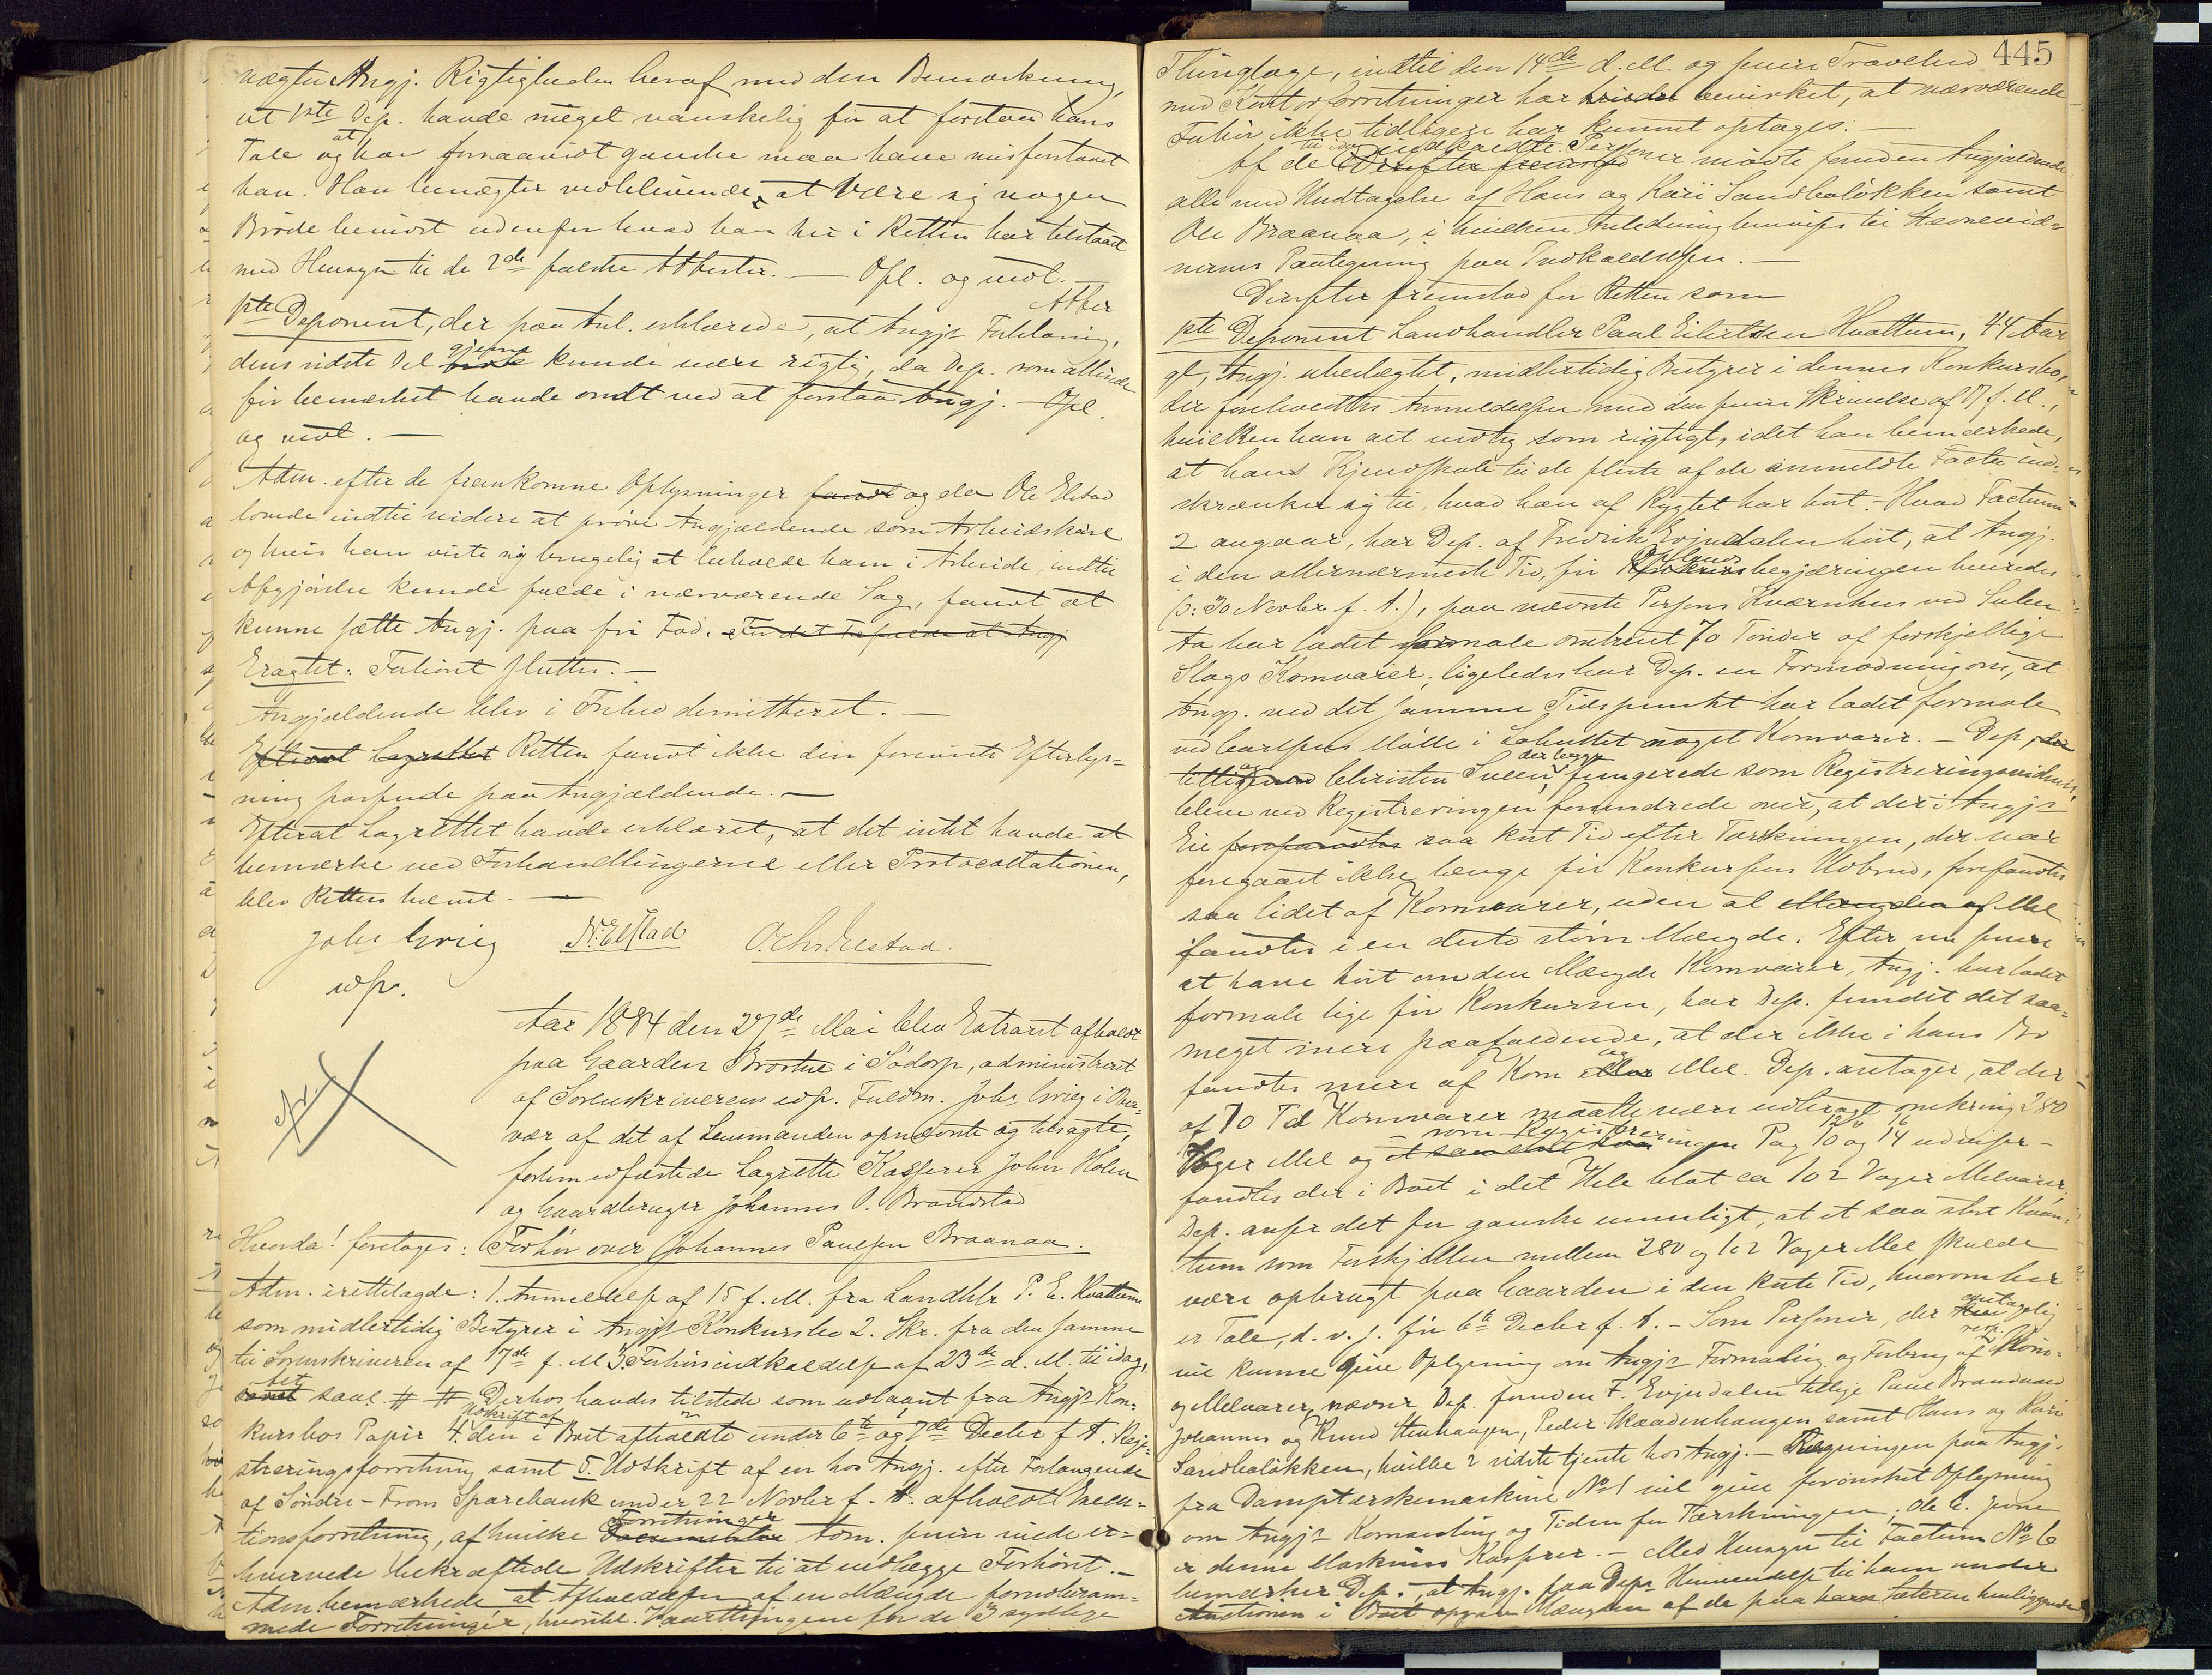 nægter Angj. Rigtigheden heraf med den Bemærkning,
at 1ste Dep. havde meget vanskelig for at forstaa hans
Tale og at han forsaavidt ganske maa have misforstaaet
ham. Han benægter vedblivende, at være sig nogen
Brøde bevidst udenfor hvad han her i Retten har tilstaaet
med Hensyn til de 2de falske Attester. — Opl. og vedt. —
1ste Deponent, der paa Anl. erklærede, at Angjs Forklaring,
dens sidste Del gjerne kunde være rigtig, da Dep. som allerede
før bemærket havde ondt ved at forstaa Angj. — Opl.
og vedt. —
Adm. efter de fremkomne Oplysninger fandt og da Ole Elstad
lovede indtil videre at prøve Angjældende som Arbeidskarl
og hvis han viste sig brugelig at beholde ham i Arbeide, indtil
Afgjørelse kunde falde i nærværende Sag, fandt at
kunne sætte Angj. paa fri Fod. For det Tilfælde at Angj
Eragtet: Forhøret sluttes. —
Angjældende blev i Frihed demitteret. —
Efterat Lagrettet Retten fandt ikke den foreviste Efterlys-
ning passende paa Angjældende. —
Efterat Lagrettet havde erklæret, at det intet havde at
bemærke ved Forhandlingerne eller Protocollationen,
blev Retten hævet. —
Johs Grieg N: Elstad O. Chr. Elestad.
edsv.
Aar 1884 den 27de Mai blev Extraret afholdt
paa Gaarden Brostue i Sødorp, administreret
af Sorenskriverens edsv. Fuldm. Johs Grieg i Over-
vær af det af Lensmanden opnævnte og tilsagte,
forhen edfæstede Lagrette Kasserer John Holen
og Gaardbruger Johannes O. Brandstad
Hvorda! foretoges: Forhør over Johannes Paulsen Braanaa.
Adm. irettelagde: 1. Anmeldelse af 15 f. M. fra Landhdlr P. E. Kvattum
som midlertidig Bestyrer i Angjs Konkursbo 2. Skr. fra den samme
til Sorenskriveren af 17de f. M 3. Forhørsindkaldelse af 23de d. M. til idag,
samt saal. # # Derhos havdes tilstede som udlaant fra Angjs Kon-
kursbos Papir 4. Udskrift af den i Boet afholdte under 6te og 7de Decbr f. A. Regi-
streringsforretning samt 5. Udskrift af en hos Angj. efter Forlangende
af Søndre-Frons Sparebank under 22 Novbr f. A. afholdt Execu-
tionsforretning, af hvilke Documenter Forretninger Adm. senere vilde er-
hverve bekræftede Udskrifter til at vedlægge Forhøret. —
Adm. bemærkede at Afholdelsen af en Mængde forudberam-
mede Forretninger, hvoribl. Vaartingene for de 3 sydlige
445
Thinglage, indtil den 14de d. M. og senere Travelhed
med Kontorforretninger har bevirket, at nærværende
Forhør ikke tidligere har kunnet optages. —
Af de til idag indkaldte Personer mødte foruden Angjældende
alle med Undtagelse af Hans og Kari Sandbaløkken samt
Ole Braanaa, i hvilken Anledning henvises til Stævnevid-
nernes Paategning paa Indkaldelsen. —
Derefter fremstod for Retten som
1ste Deponent Landhandler Paul Eilertsen Hvattum, 44 Aar
gl, Angj. ubeslægtet, midlertidig Bestyrer i dennes Konkursbo,
der foreholdtes Anmeldelsen med den senere Skrivelse af 17 f. M.,
hvilken han alt vedtog som rigtigt, idet han bemærkede,
at hans Kjendskab til de fleste af de anmeldte Facta ind-
skrænker sig til, hvad han af Rygtet har hørt. — Hvad Factum
2 angaar, har Dep. af Fredrik Evjudalen hørt, at Angj.
i den allernærmeste Tid, før Opbudsbegjæringen
(ɔ: 30 Novbr f. A.), paa nævnte Persons Kværnhus ved Sulen
Aa har ladet formale omtrent 70 Tønder af forskjellige
Slags Kornvarer; ligeledes har Dep. en Formodning om, at
Angj. ved det samme Tidspunkt har ladet formale
ved Mølle i noget Kornvarer. — Dep,
Christen Sveen, der begge fungerede som Registreringsvidner,
bleve ved Registreringen forundrede over, at der i Angjs
Eie saa kort Tid efter Tærskningen, der var
foregaaet ikke længe før Konkursens Udbrud, forefandtes
saa lidet af Kornvarer, uden at Mængden af Mel
fandtes i en desto større Mængde. Efter nu senere
at have hørt om den Mængde Kornvarer, Angj. har ladet
formale lige før Konkursen, har Dep. fundet det saa-
meget mere paafaldende, at der ikke i hans Bo
fandtes mere af Korn og Mel. Dep. antager, at der
af 70 Td Kornvarer maatte være udbragt omkring 280
Voger Mel og — som Registreringen Pag 10 og 14 udviser —
fandtes der i Boet i det Hele blot ca 102 Voger Melvarer.
Dep. anser det for ganske umuligt, at et saa stort Kvan-
tum som Forskjellen mellem 280 og 102 Voger Mel skulde
være opbrugt paa Gaarden i den korte Tid, hvorom her
er Tale, d. v. s. før 6te Decbr f. A. — Som Personer, der antagelig
vil kunne give Oplysning om Angjs Formaling og Forbrug af resp. Korn-
og Melvarer, nævner Dep. foruden F. Evjudalen tillige Paul Brandvold
Johannes og Knud Stenhaugen, Peder Skaadenhaugen samt Hans og Kari
Sandbaløkken, hvilke 2 sidste tjente hos Angj. — Regningen paa Angj.
fra Damptærskemaskine No 1 vil give forønsket Oplysning
om Angjs Kornavling og Tiden for Tærskningen; Ole E. Jevne
er denne Maskines Kasserer. — Med Hensyn til Factum No 6
bemærker Dep., at Angj. paa Deps Henvendelse til ham under
Auctionen i Boet opgav Mængden af de paa hans Sæteren henliggende